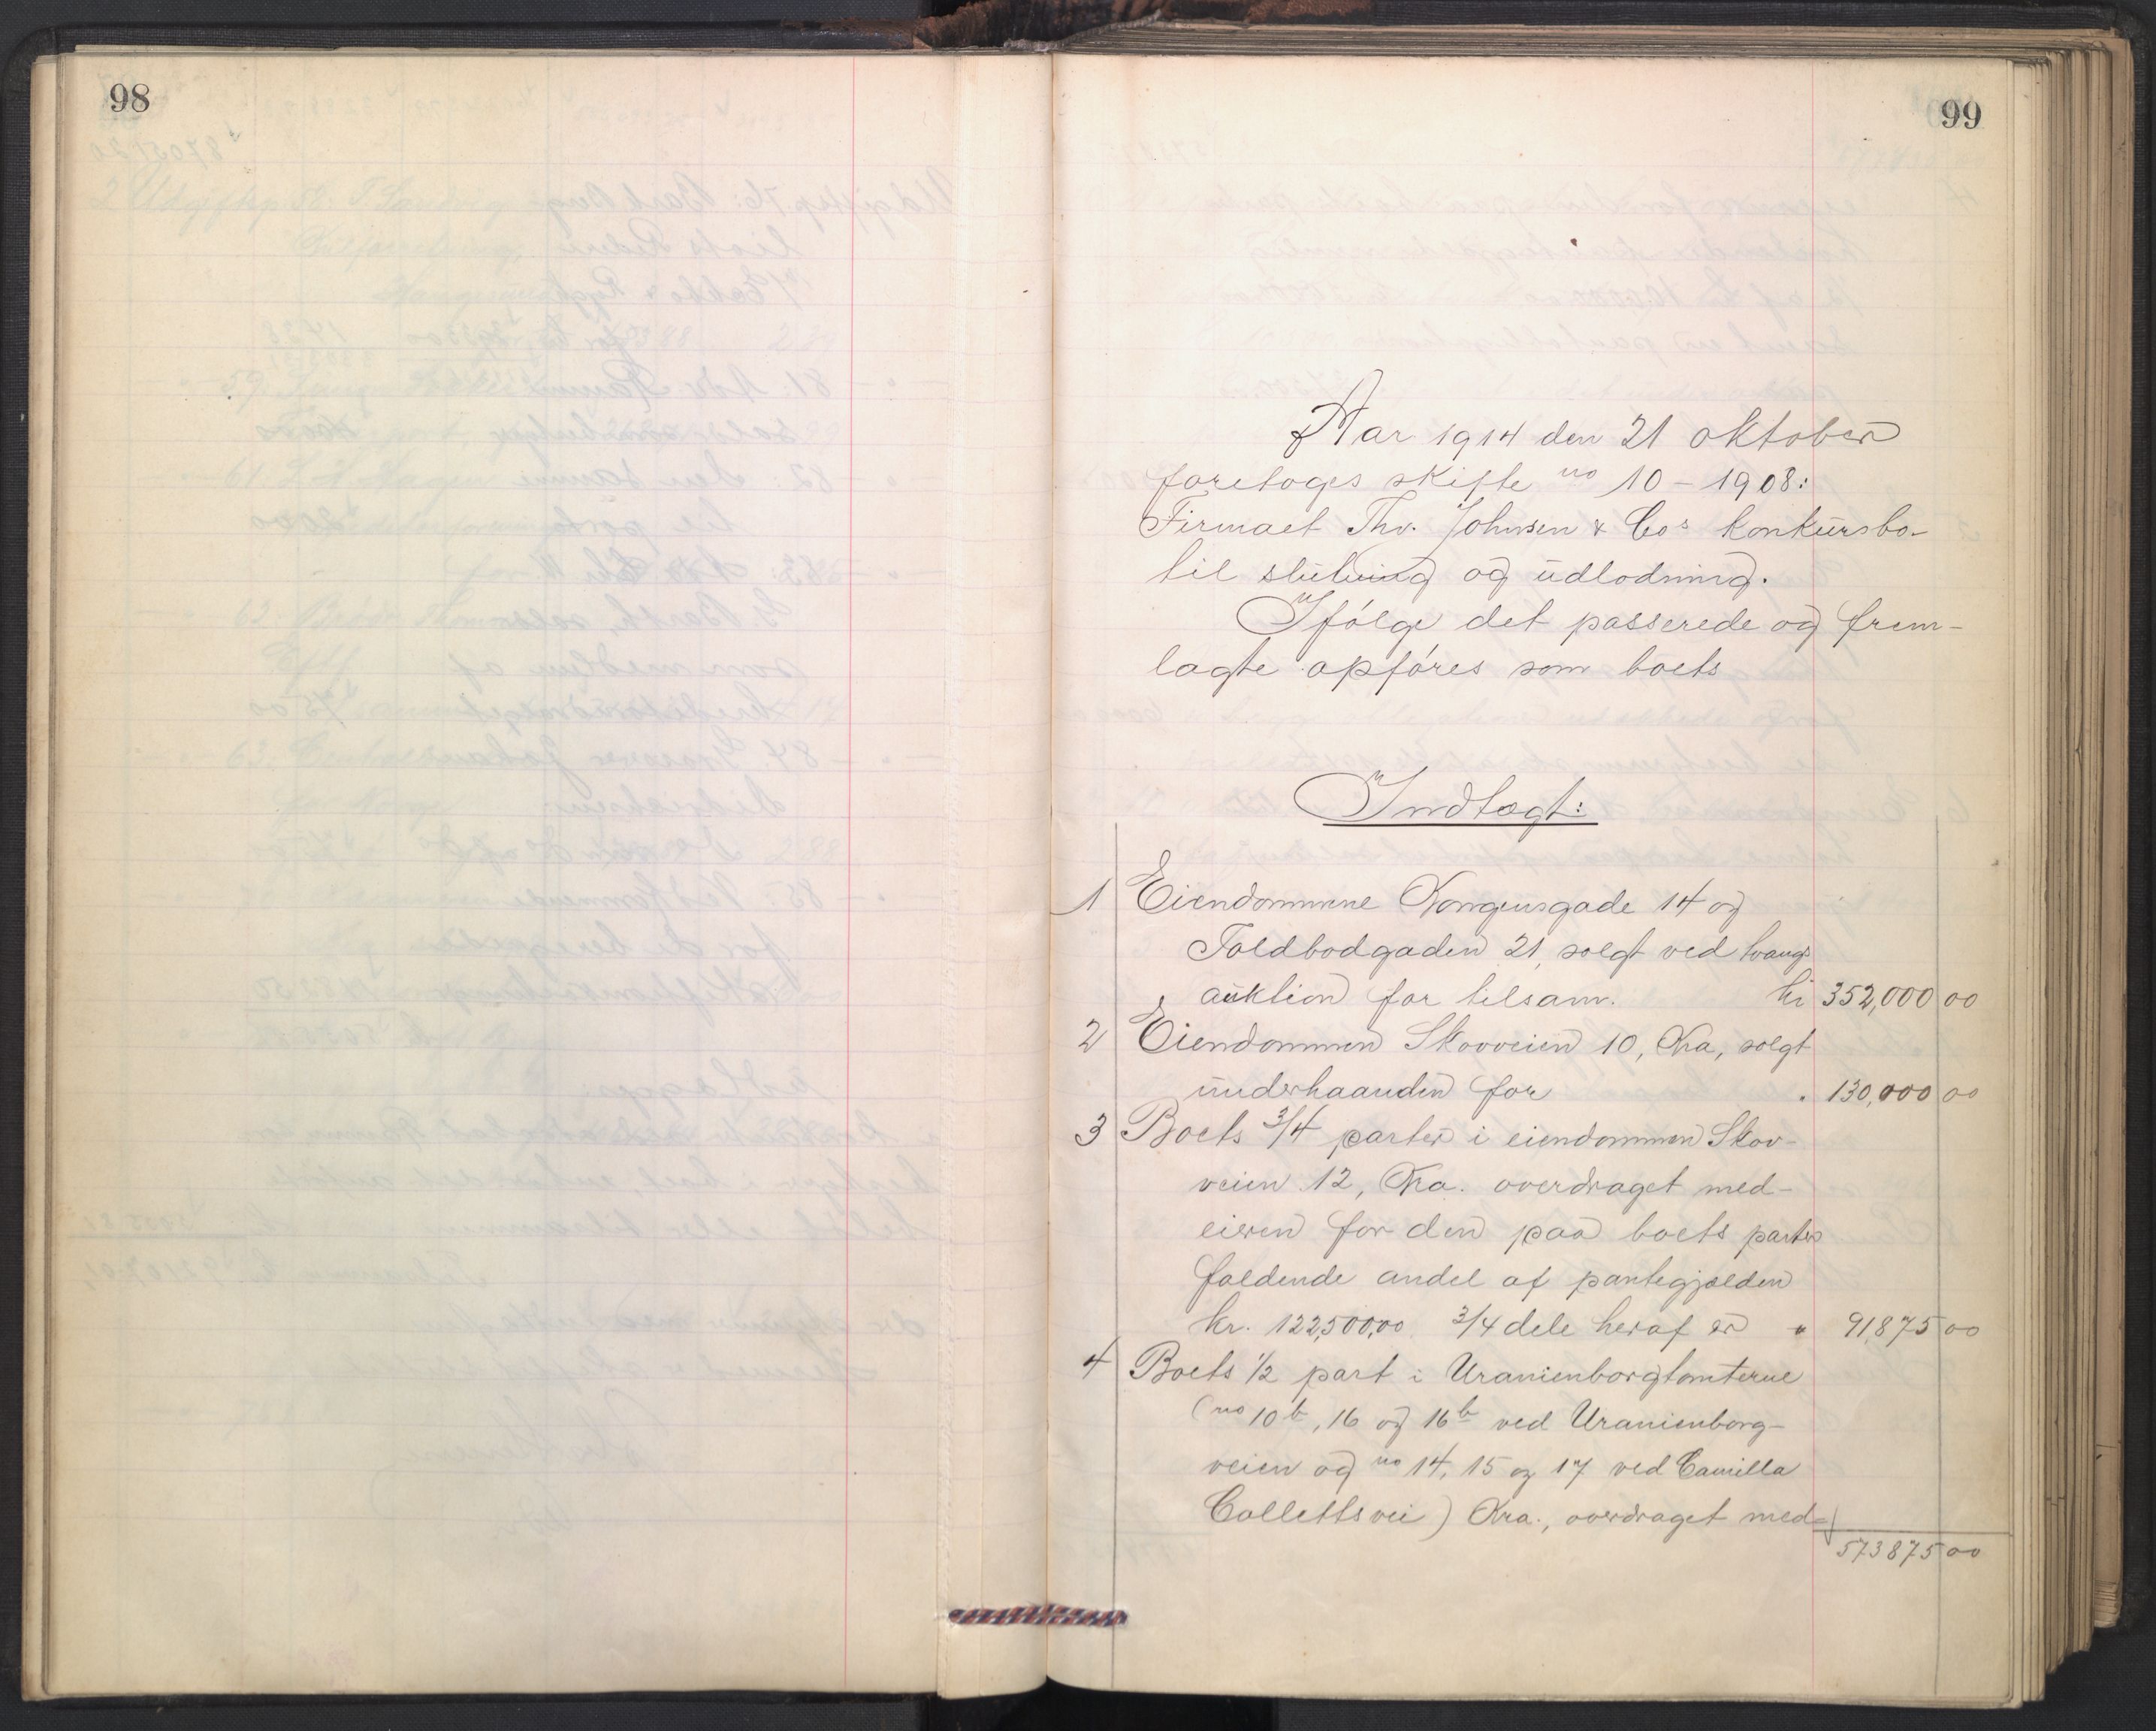 98
99
Aar 1914 den 21 oktober
foretoges skifte no 10 - 1908:
Firmaet Thv. Johnsen & Cos konkursbo
til slutning og udlodning.
Ifølge det passerede og frem-
lagte opføres som boets
Indtægt:
1 Eiendommene Kongensgade 14 og
Toldbodgaden 21, solgt ved tvangs
auktion for tilsam. kr 352,000 00
2 Eiendommen Skovveien 10, Kra, solgt
underhaanden for " 130,000 00
3 Boets 3/4 parter i eiendommen Skov-
veien 12, Kra. overdraget med-
eieren for den paa boets parter
faldende andel af pantegjælden
kr. 122,500,00 3/4 dele heraf er " 91,875 00
4 Boets 1/2 part i Uranienborgtomterne
(no 10b, 16 og 16b ved Uranienborg-
veien og no 14, 15 og 17 ved Camilla
Colletts vei) Kra., overdraget med-
573875 00